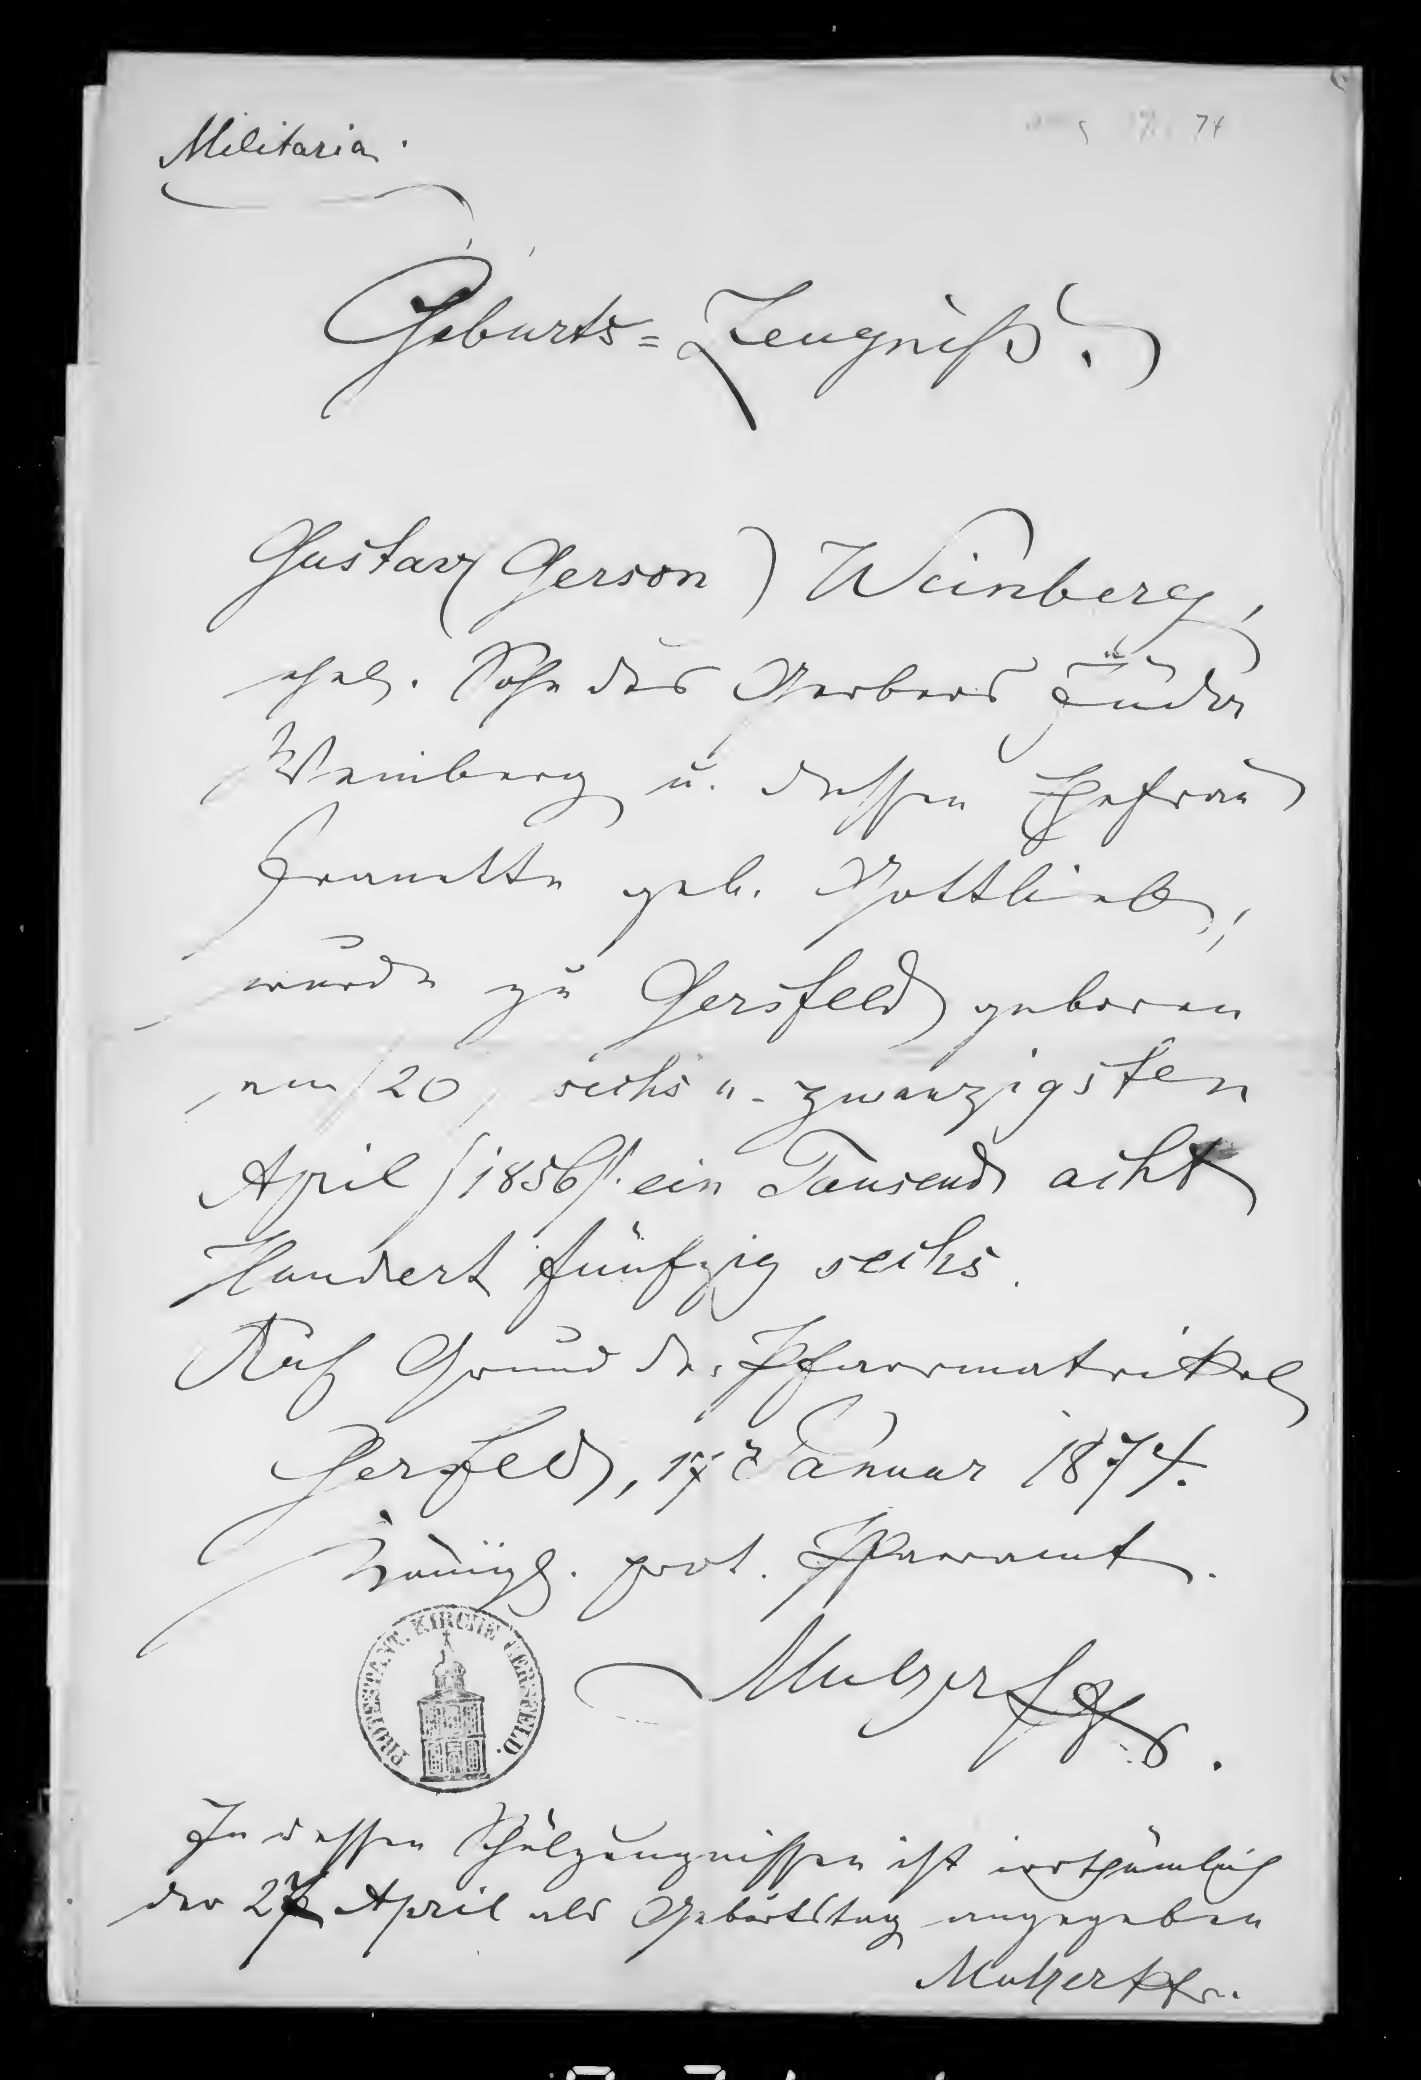 Militaria.
74
Geburts=Zeugniß.
Gustav (Gerson) Weinberg,
ehel. Sohn des Gerbers Juda
Weinberg u. dessen Ehefrau
Jeanette geb. Gottlieb,
wurde zu Gersfeld geboren
am 26, sechs u. zwanzigsten
April (1856). ein Tausend acht
Hundert fünfzig sechs.
Auf Grund der Pfarrmatrikel
Gersfeld, 17 Januar 1874.
Königl. prot. Pfarramt.
PROTESTANT. KIRCHE GERSFELD.
Mulzer Pfr.
In dessen Schulzeugnissen ist irrthümlich
der 27 April als Geburtstag angegeben
Mulzer Pfr.